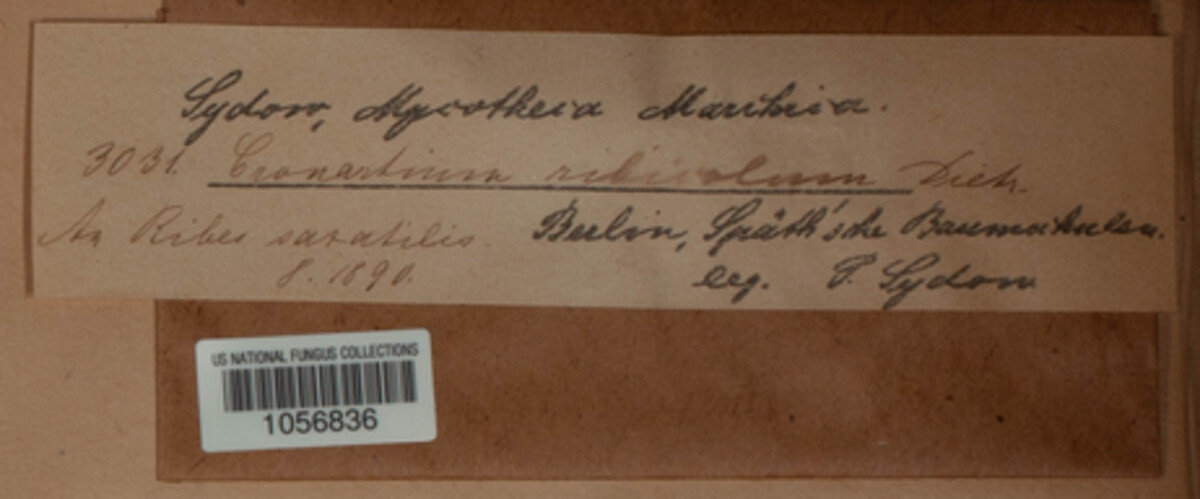 Sydow, Mycotheca Marchica.
3031. Cronartium ribicolum Dietr.
An Ribes saxatilis. Berlin, Späth'sche Baumschulen.
8. 1890. leg. P. Sydow
US NATIONAL FUNGUS COLLECTIONS
1056836